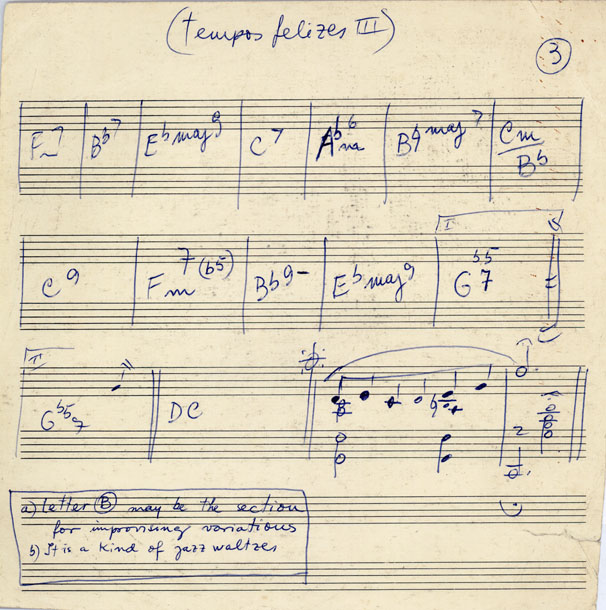 (Tempos felizes III)
3
Fm7 Bb7 Ebmaj9 C7 Abm6 Bbmaj7 Cm/Bb
I
C9 Fm7(b5) Bb9- Ebmaj9 G7b5
II
Gb57 DC
a) letter B may be the section
for improvising variations
b) It is a kind of jazz waltzes